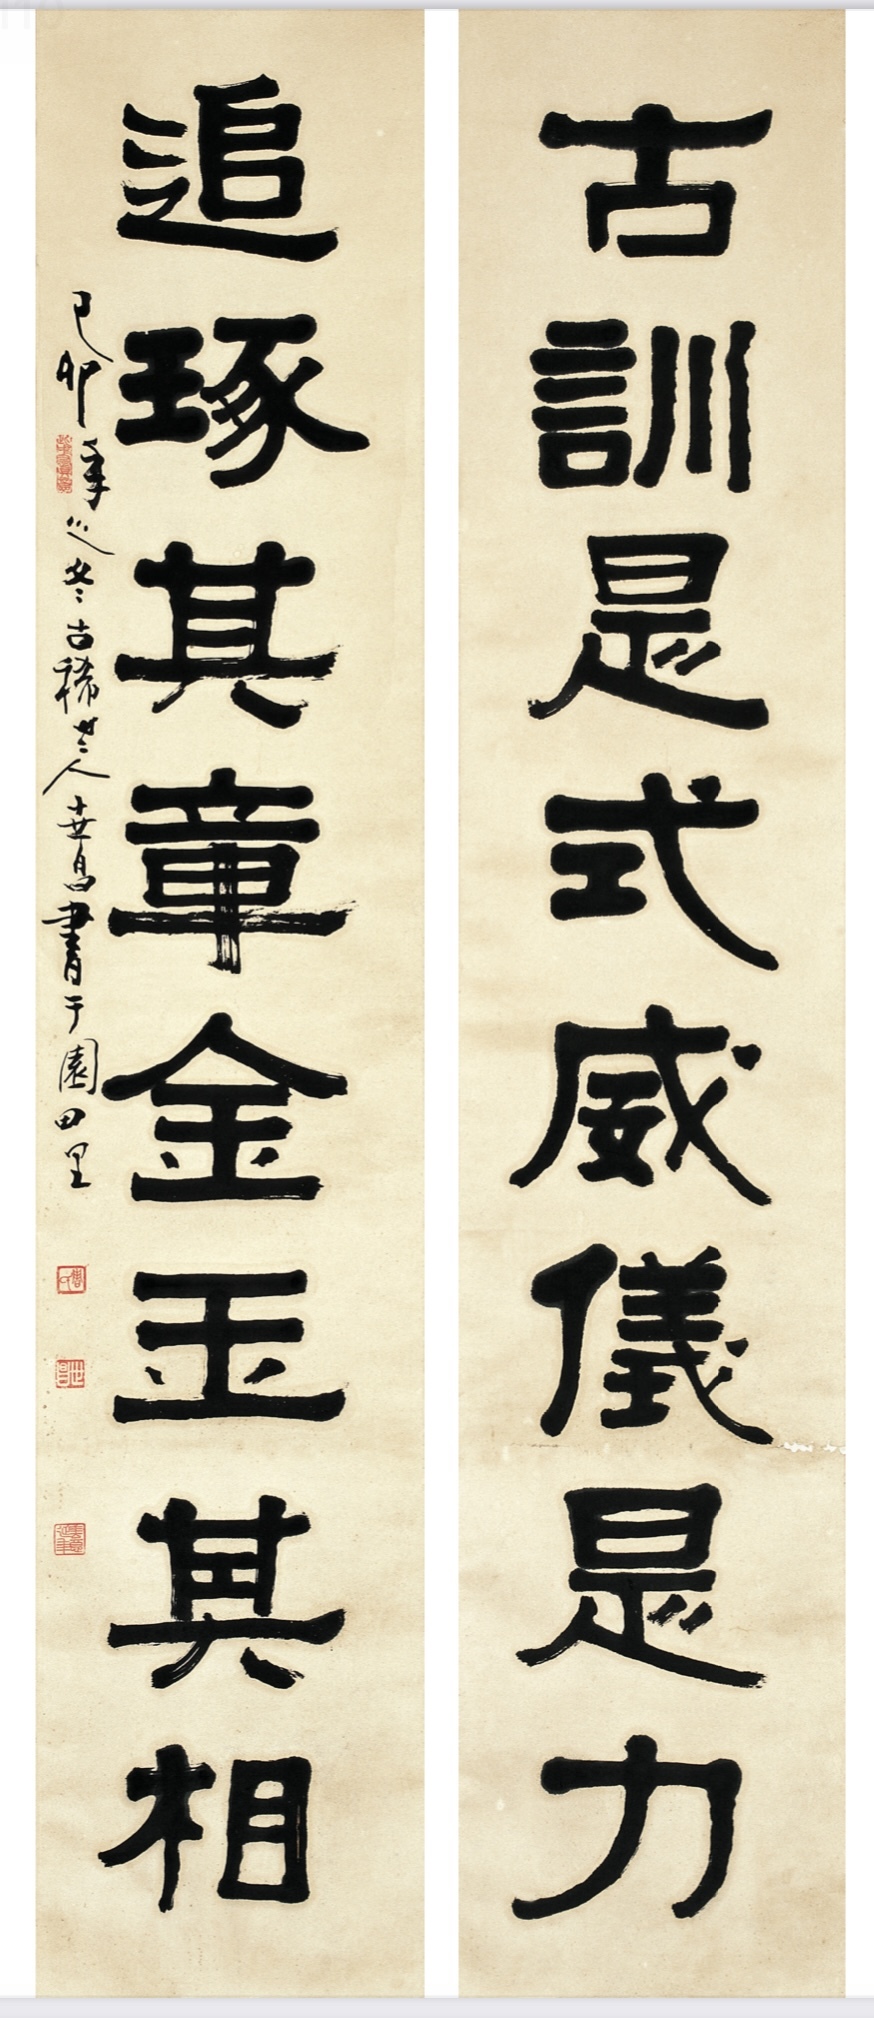 古訓是式威儀是力
追琢其章金玉其相
己卯年之冬古稀老人世昌書于園田里